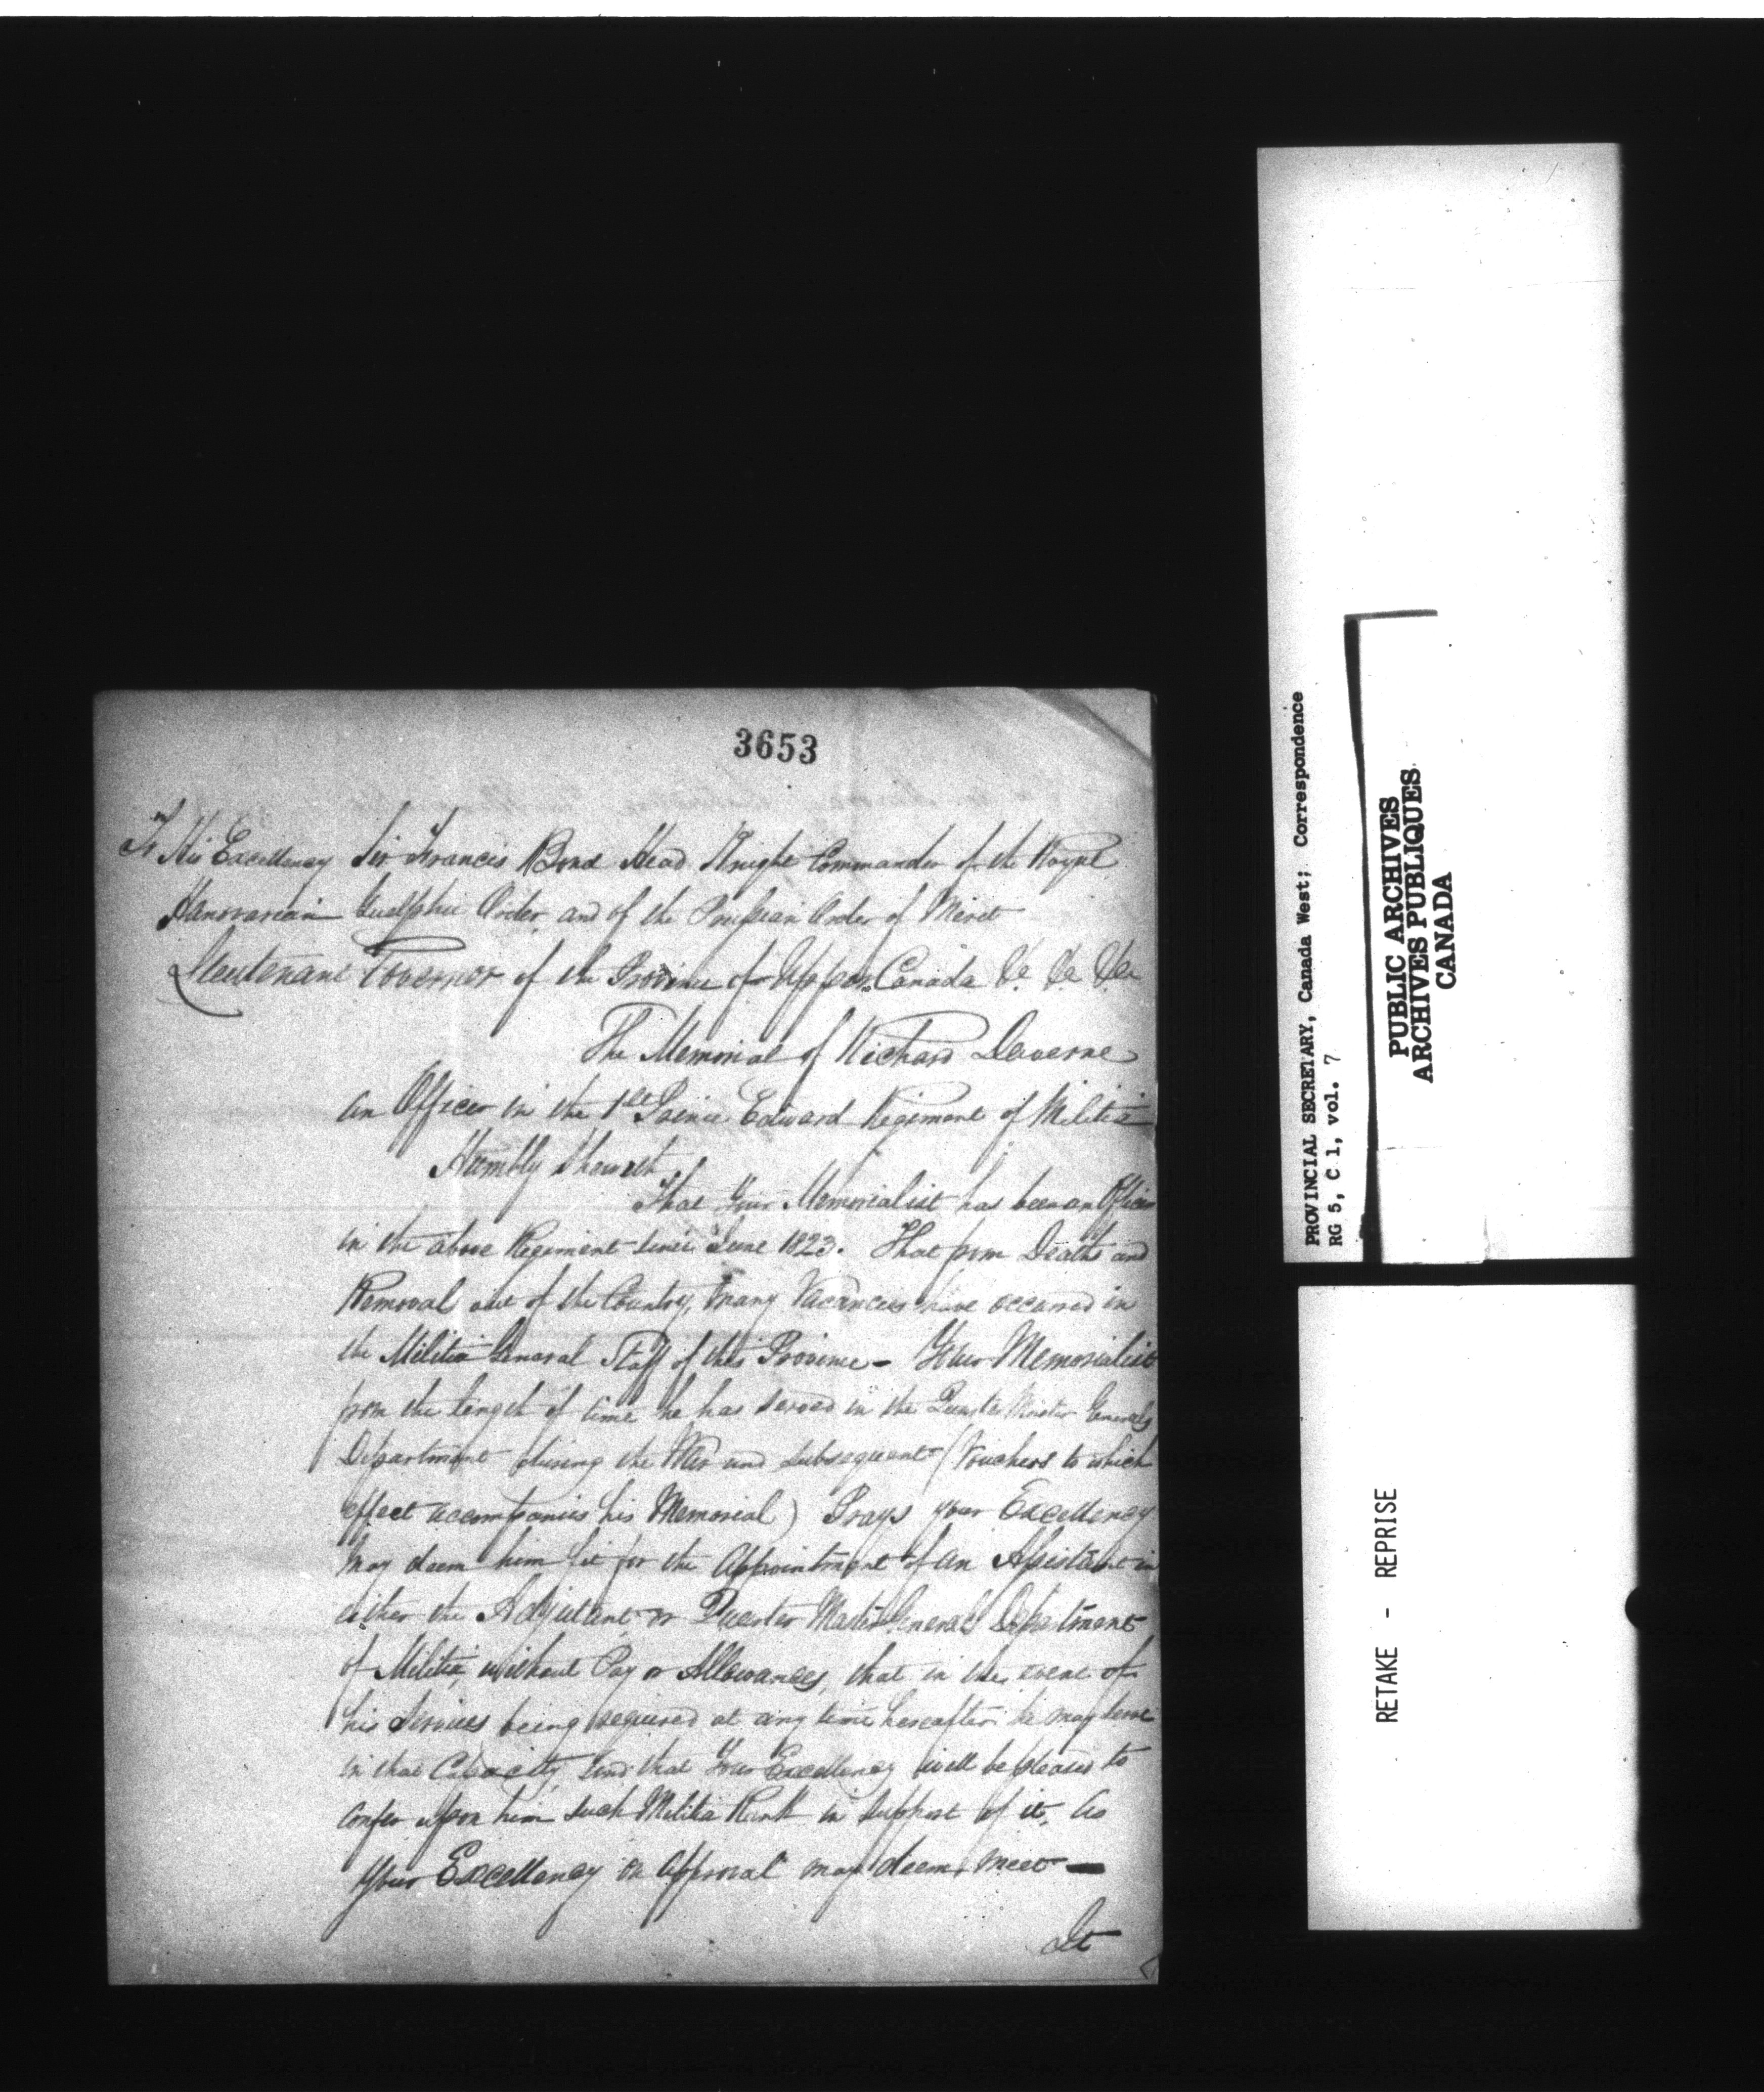 3653
To His Excellency Sir Francis Bond Head Knight Commander of the Royal
Hanovarian Guelphic Order, and of the Prussian Order of Merit
Lieutenant Governor of the Province of Upper Canada &c &c &c
The Memorial of Richard Daverne
an Officer in the 1st Prince Edward Regiment of Militia
Humbly Sheweth
That your Memorialist has been an Officer
in the above Regiment since June 1823. That from Deaths and
Removal out of the Country, many Vacancies have occurred in
the Militia General Staff of this Province - Your Memorialist
from the length of time he has served in the Quarter Master Generals
Department during the War and subsequent (Vouchers to which
effect accompanies his Memorial) Prays your Excellency
may deem him fit for the Appointment of an Assistant in
either the Adjutant or Quarter Master General Department
of Militia, without Pay or Allowances, that in the event of
his Services being required at any time hereafter he may serve
in that Capacity, and that Your Excellency will be pleased to
confer upon him such Militia Rank in support of it, as
Your Excellency on approval may deem meet —
It
PROVINCIAL SECRETARY, Canada West; Correspondence
RG 5, C 1, vol. 7
PUBLIC ARCHIVES
ARCHIVES PUBLIQUES
CANADA
RETAKE - REPRISE